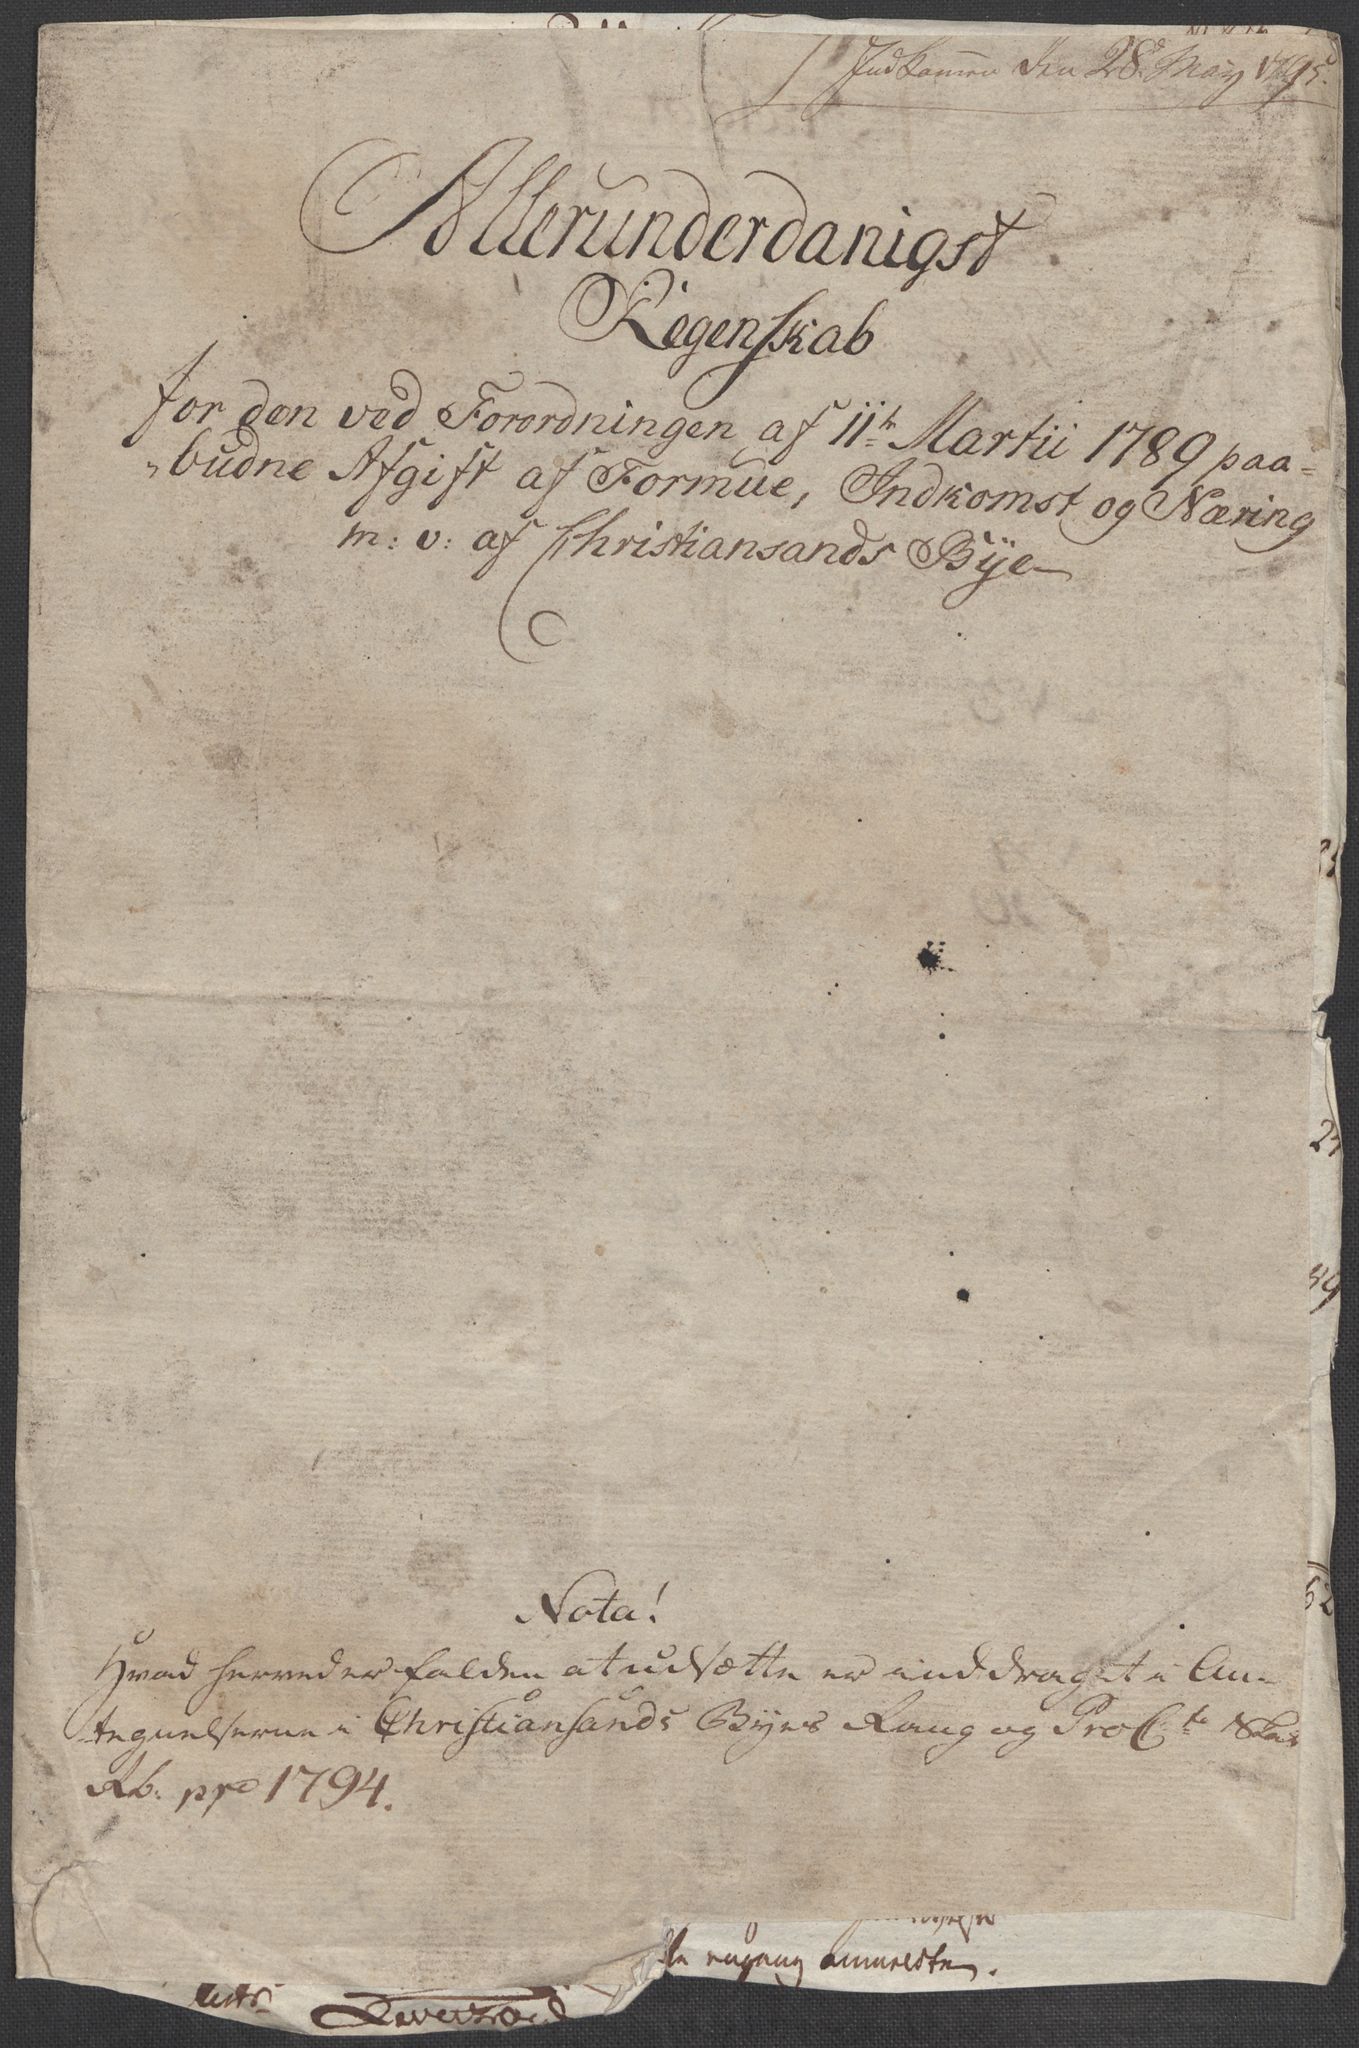 Indkommen den 28d May 1795.
Allerunderdanigst
Regenskab
for den ved Forordningen af 11te Martii 1789 paa=
"budne Afgift af Formue, Indkomst og Næring
m: v: af Christiansands Bÿe
Nota!
Hvad herved er falden at udsætte er inddraget i An-
tegnelserne i Christiansands Byes Rang og ProCto Skat
Rb: pro 1794.
27
49
52